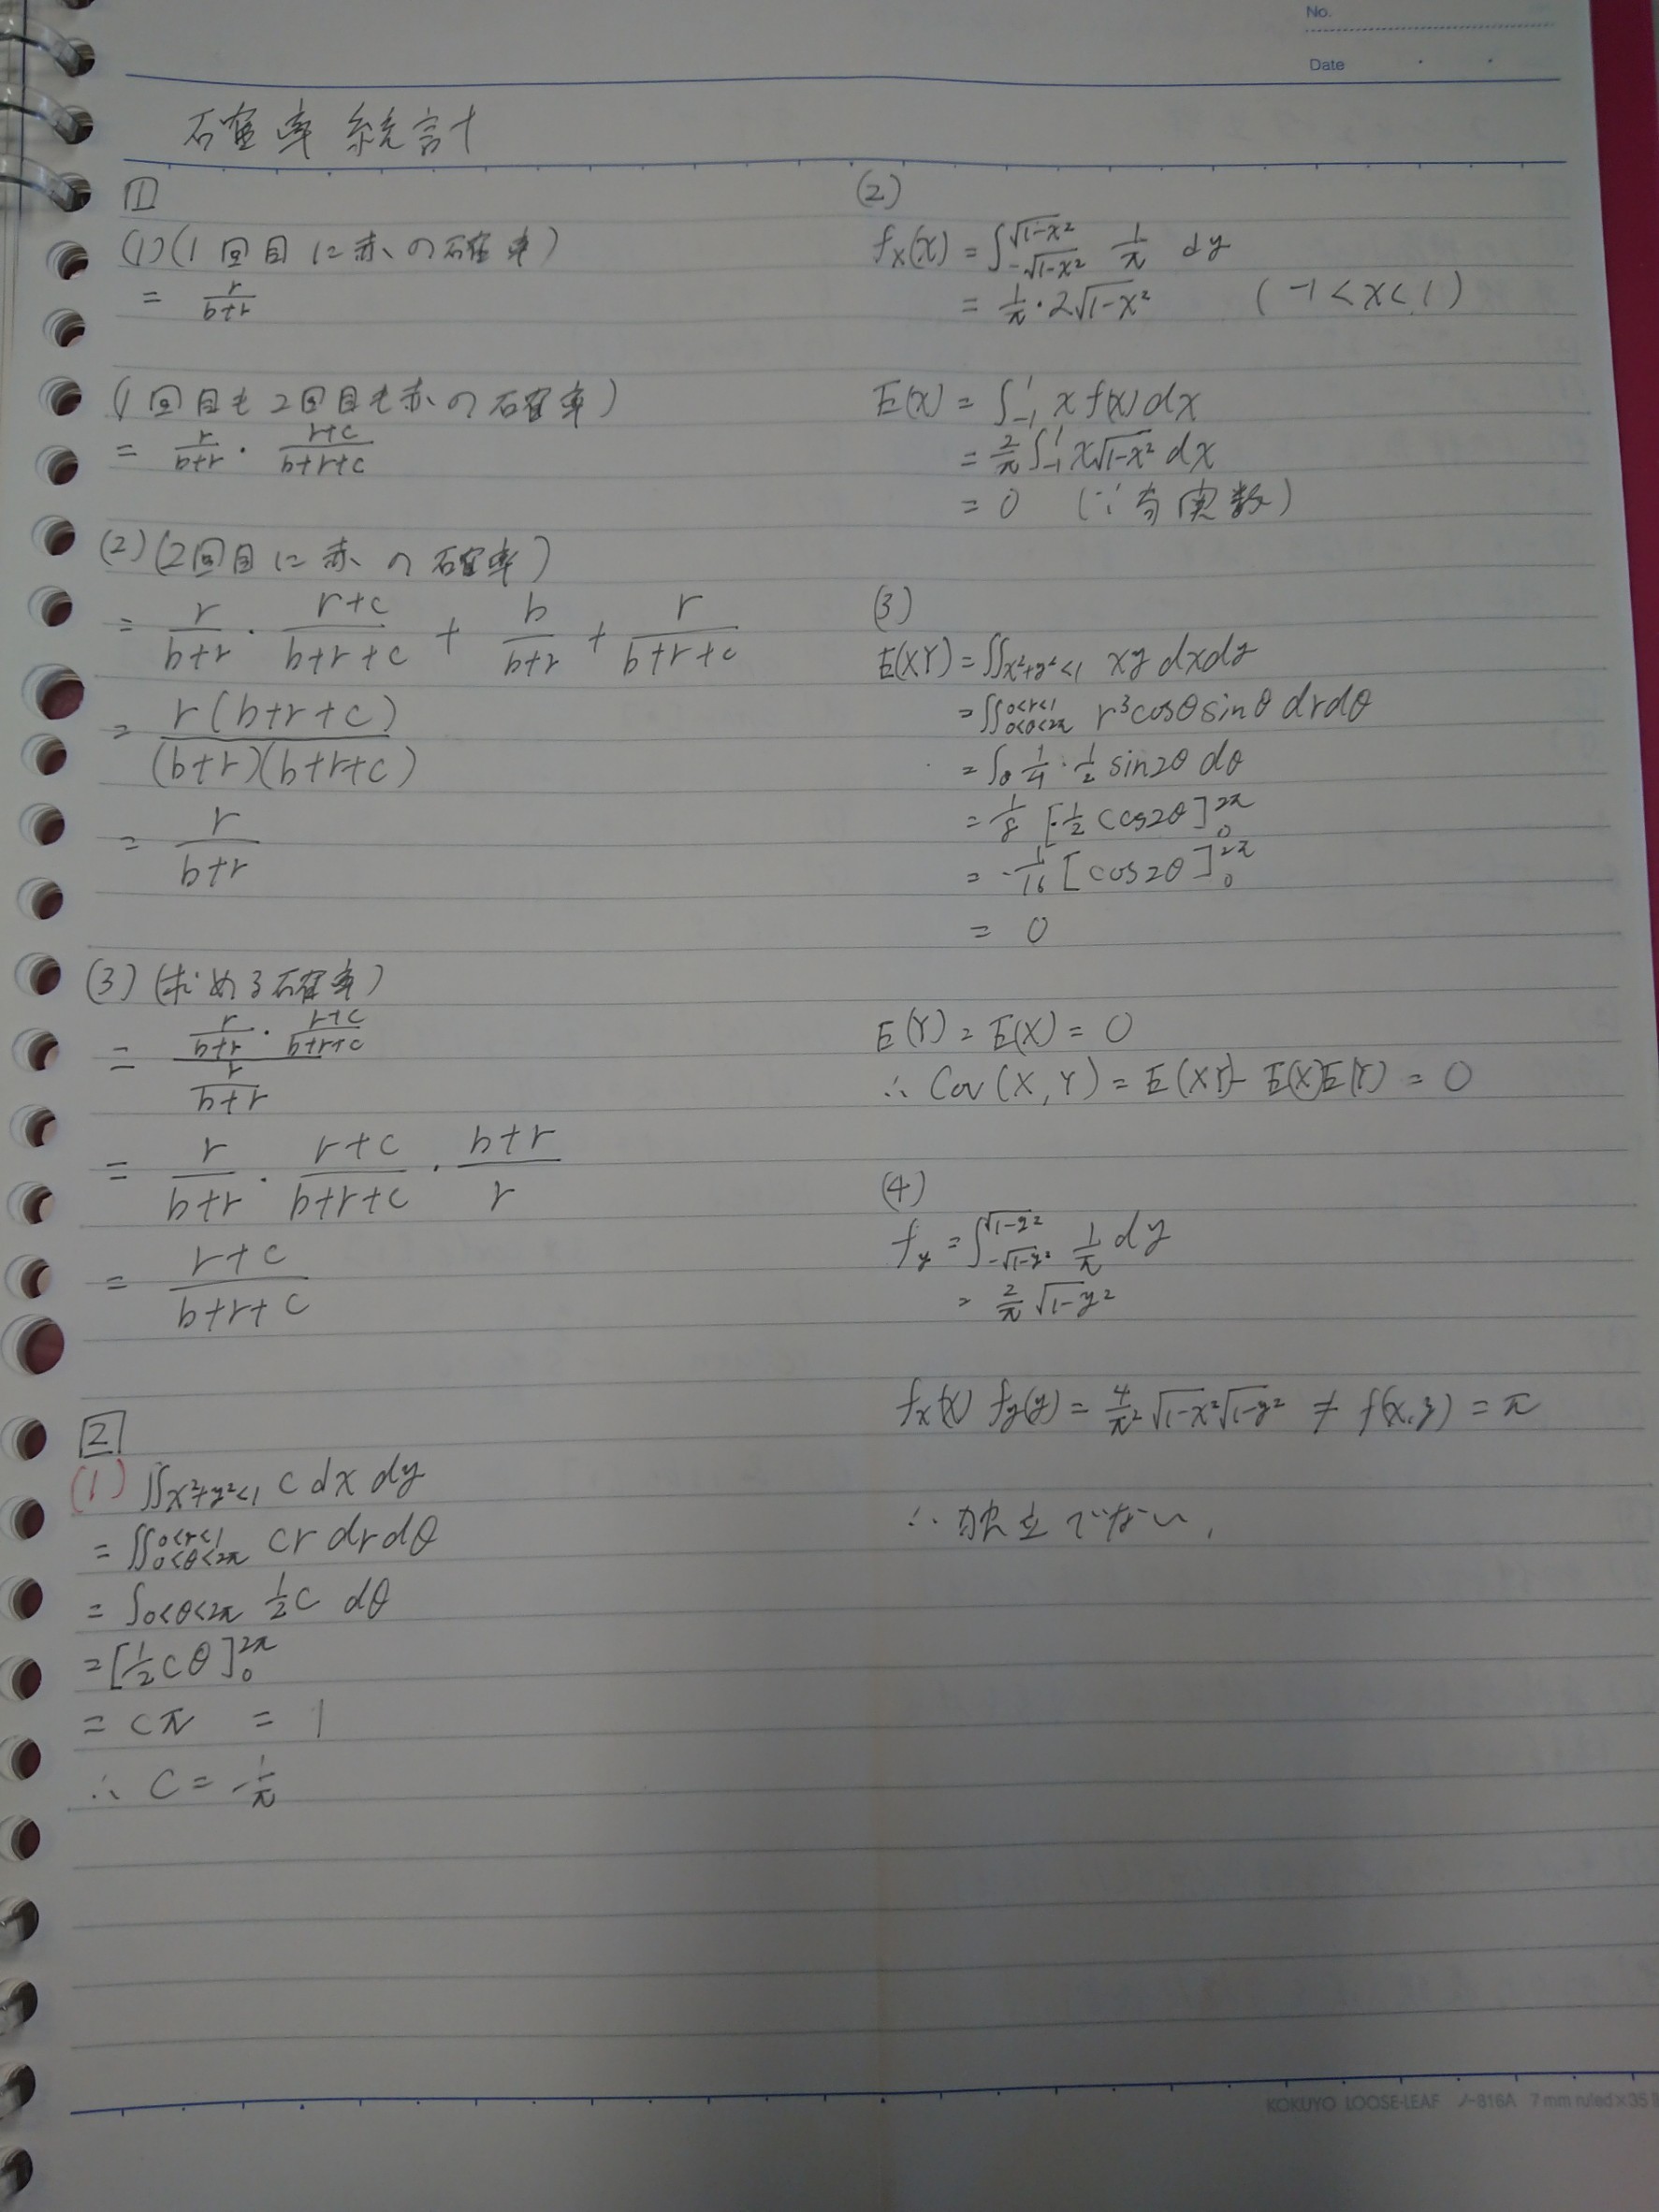 No.
Date
確率統計
1
(1)(1回目に赤の確率)
= r/(b+r)
(1回目も2回目も赤の確率)
= r/(b+r) · (r+c)/(b+r+c)
(2)(2回目に赤の確率)
= r/(b+r) · (r+c)/(b+r+c) + b/(b+r) + r/(b+r+c)
= r(b+r+c)/(b+r)(b+r+c)
= r/(b+r)
(3)(求める確率)
= (r/(b+r) · (r+c)/(b+r+c))/(r/(b+r))
= r/(b+r) · (r+c)/(b+r+c) · (b+r)/r
= (r+c)/(b+r+c)
2
(1) ∬x²+y²<1 c dx dy
= ∬0<r<1 0<θ<2π cr dr dθ
= ∫0<θ<2π 1/2 c dθ
= [1/2 cθ]₀^2π
= cπ = 1
∴ c = 1/π
(2)
fx(x) = ∫_-√(1-x²)^√(1-x²) 1/π dy
= 1/π · 2√(1-x²) (-1<x<1)
E(X) = ∫_-1^1 x f(x) dx
= 2/π ∫_-1^1 x√(1-x²) dx
= 0 (∵奇関数)
(3)
E(XY) = ∬x²+y²<1 xy dxdy
= ∬0<r<1 0<θ<2π r³cosθsinθ drdθ
= ∫θ 1/4 · 1/2 sin2θ dθ
= 1/8 [-1/2 cos2θ]₀^2π
= -1/16 [cos2θ]₀^2π
= 0
E(Y) = E(X) = 0
∴ Cov(X,Y) = E(XY) - E(X)E(Y) = 0
(4)
fy = ∫_-√(1-y²)^√(1-y²) 1/π dy
= 2/π √(1-y²)
fx(x) fy(y) = 4/π² √(1-x²)√(1-y²) ≠ f(x,y) = π
∴ 独立でない.
KOKUYO LOOSE-LEAF ノ-816A 7 mm ruled×35